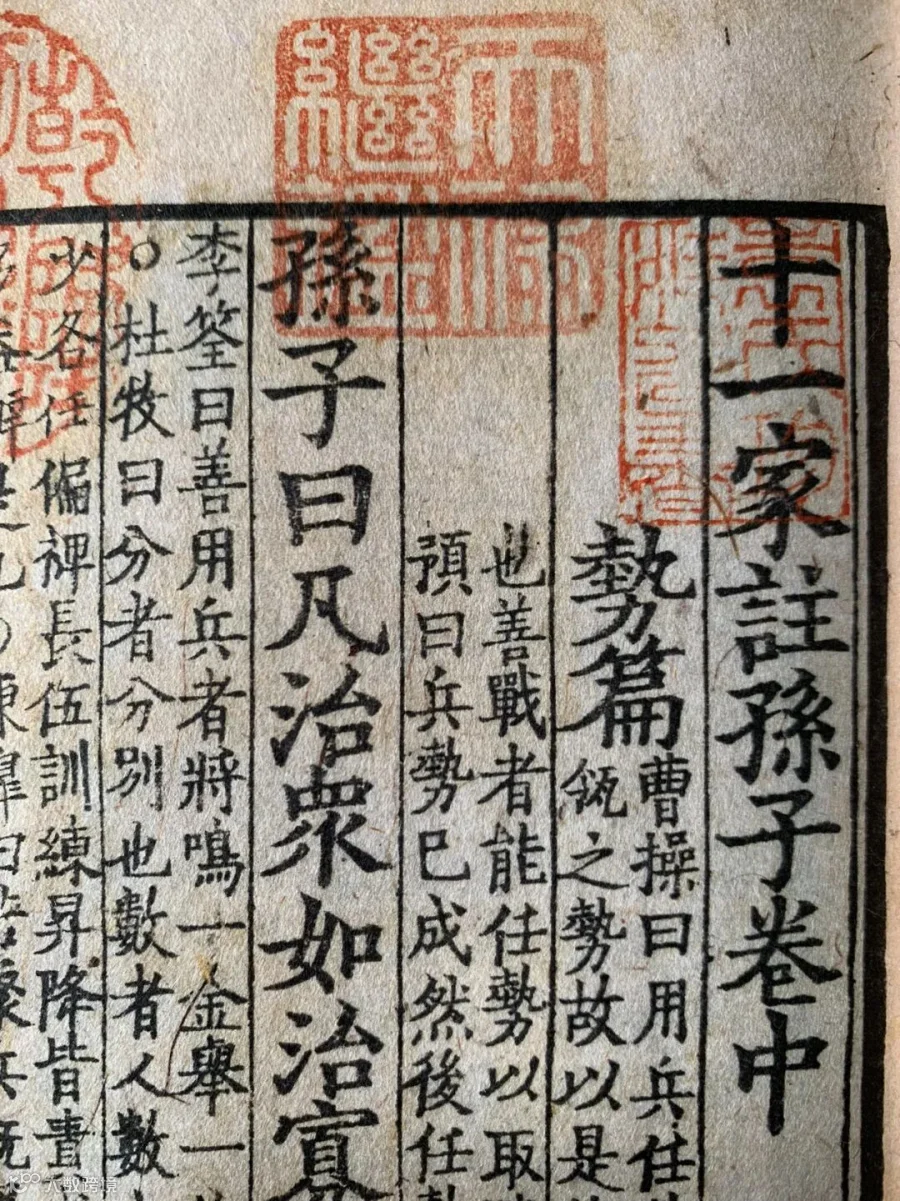 十一家註孫子卷中
勢篇
曹操曰用兵任
瓴之勢故以是
也善戰者能任勢以取
預曰兵勢已成然後任
孫子曰凡治眾如治寡
李筌曰善用兵者將鳴一金舉一
○杜牧曰分者分別也數者人數
少各任偏裨長伍訓練昇降皆責
是也○陳皞曰若聚兵既
大数跨境